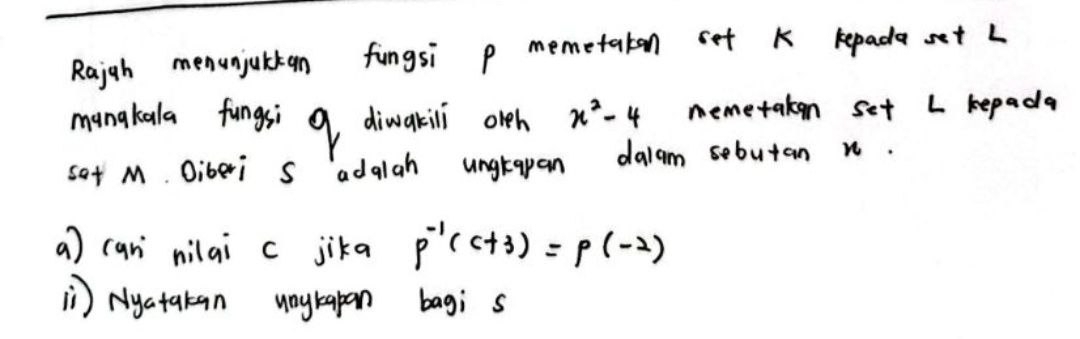 Rajah menunjukkan fungsi p memetakan set K kepada set L
manakala fungsi q diwakili oleh x² - 4 memetakan set L kepada
set M. Diberi s adalah ungkapan dalam sebutan x.
a) cari nilai c jika p⁻¹(c+3) = p(-2)
ii) Nyatakan ungkapan bagi s